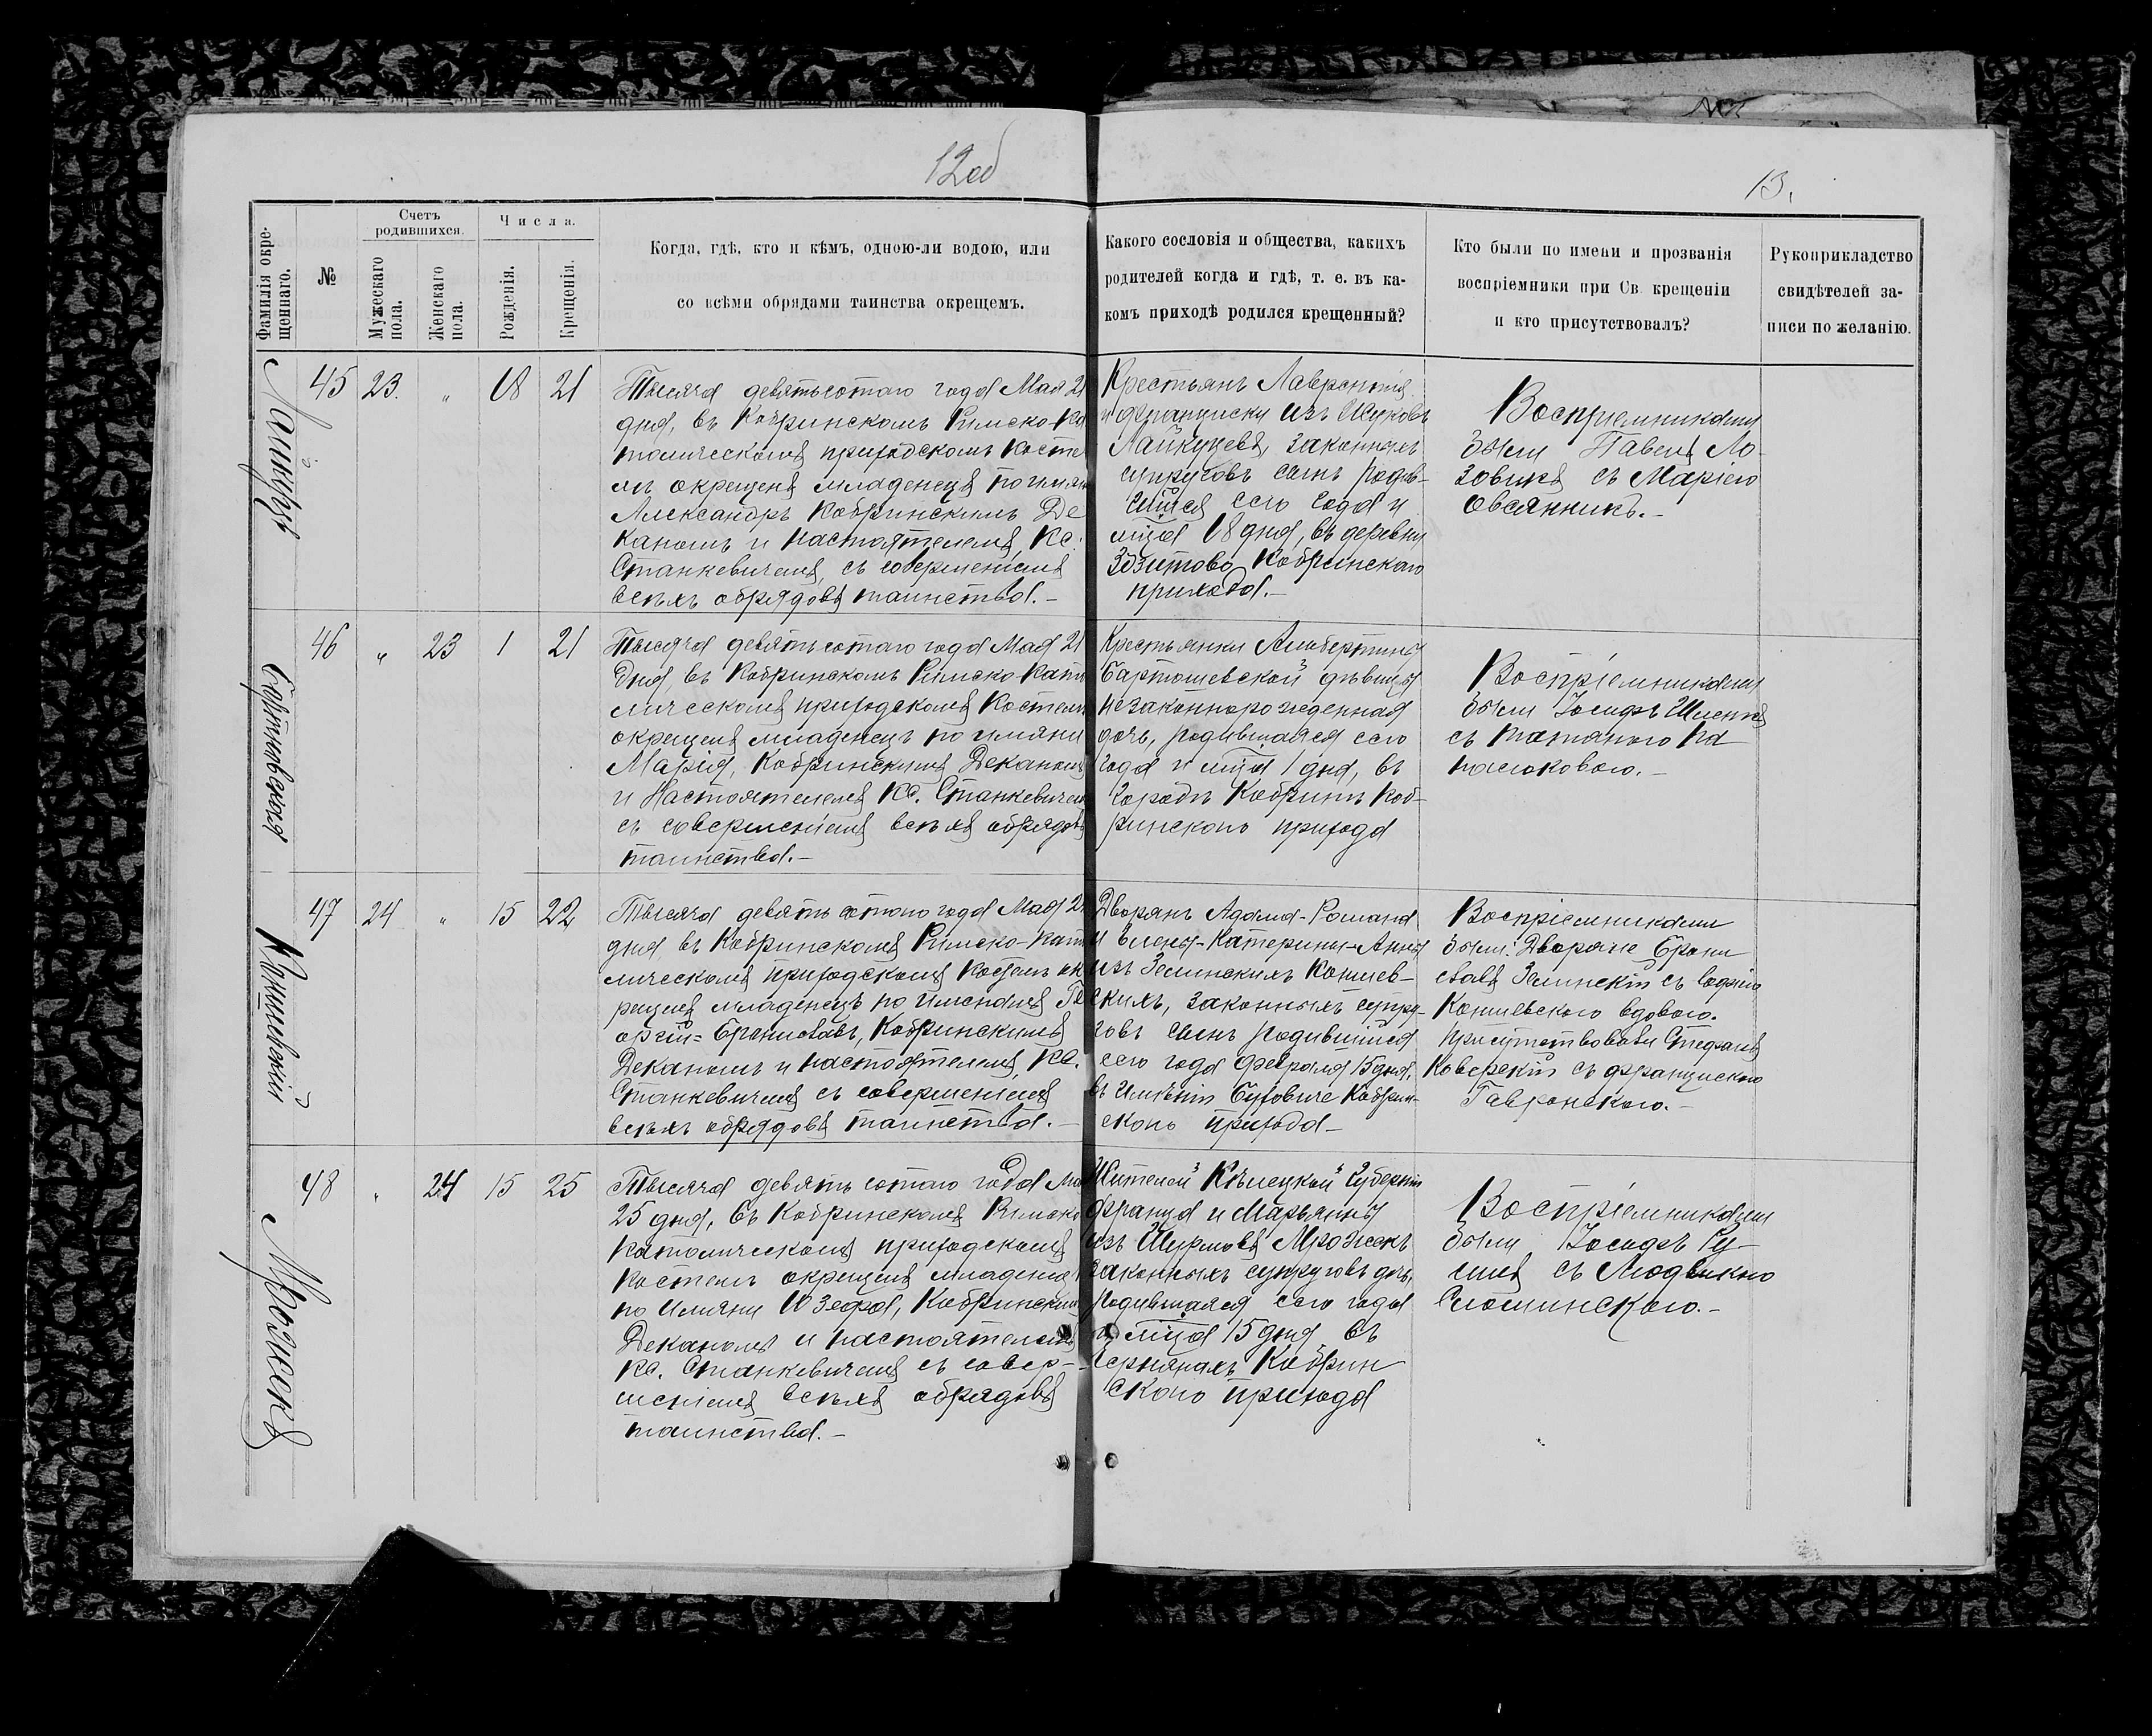 12об
13.
Фамилія окре-
щеннаго.
№
Счетъ
родившихся.
Мужескаго
пола.
Женскаго
пола.
Числа.
Рожденія.
Крещенія.
Когда, гдѣ, кто и кѣмъ, одною-ли водою, или
со всѣми обрядами таинства окрещемъ.
Какого сословія и общества, какихъ
родителей когда и гдѣ, т. е. въ ка-
комъ приходѣ родился крещенный?
Кто были по имени и прозванія
воспріемники при Св. крещеніи
и кто присутствовалъ?
Рукоприкладство
свидѣтелей за-
писи по желанію.
Лайкуцъ
45 23. " 18 21
Тысяча девятьсотаго года Мая 21
дня, въ Кобринскомъ Римско-Ка
толическомъ приходскомъ косте
лѣ окрещенъ младенецъ по имян
Александръ Кобринскимъ Де
каномъ и настоятелемъ, Кс.
Станкевичемъ, съ совершеніемъ
всѣхъ обрядовъ таинства.-
Крестьянъ Лаврентія
и Франциски изъ
Лайкуцевъ, законныхъ
супруговъ сынъ родив-
шійся сего года и
мѣца 18 дня, въ деревни
Зоситово Кобринскаго
прихода.-
Воспріемниками
были Павелъ Ло-
зовикъ съ Маріею
Овсянникъ.-
Бартошевская
46 " 23 1 21
Тысяча девятьсотаго года Мая 21
дня, въ Кобринскомъ Римско-Като
лическомъ приходскомъ Костелѣ
окрещенъ младенецъ по имяни
Марія, Кобринскимъ Деканомъ
и Настоятелемъ Кс. Станкевичемъ
съ совершеніемъ всѣхъ обрядовъ
таинства.-
Крестьянки Альбертины
Бартошевской дѣвицы
незаконнорожденная
дочь, родившаяся сего
года и мѣца 1 дня, въ
городѣ Кобринѣ Коб-
ринского прихода
Воспріемниками
были Іосифъ
съ Татяною Па
насюковою.-
Коншевскій
47 24 " 15 22
Тысяча девятьсотаго года Мая 2
дня, въ Кобринскомъ Римско-Като
лическомъ приходскомъ Костелѣ ок
рещенъ младенецъ по именамъ Ге
оргій-Брониславъ, Кобринскимъ
Деканомъ и настоятелемъ, Кс.
Станкевичемъ съ совершеніемъ
всѣхъ обрядовъ таинства.-
Дворянъ Адама-Романа
и Елены-Катерины-Анны
изъ Зелинскихъ Коншев-
скихъ, законныхъ супру-
говъ сынъ родившійся
сего года Февраля 15 дня,
въ имѣніи Буховиче Кобрин-
ского прихода-
Воспріемниками
были: Дворяне Брони
славъ Зелинскій съ Софією
Коншевскою вдовою.
присутствовали Стефанъ
Коверскій съ Францискою
Гавронскою.-
Мрожекъ
48 " 24 15 25
Тысяча девятьсотаго года Мая
25 дня, въ Кобринскомъ Римско
католическомъ приходскомъ
костелѣ окрещенъ младенецъ
по имяни Юзефа, Кобринскимъ
Деканомъ и настоятелемъ
Кс. Станкевичемъ съ совер-
шеніемъ всѣхъ обрядовъ
таинства.-
Жителей Кѣлецкой Губерніи
Франца и Марьянны
изъ Шурмовъ Мрожекъ
законныхъ супруговъ дочь,
родившаяся сего года
и мѣца 15 дня въ
Чернянахъ Кобрин
ского прихода
Воспріемниками
были Іосифъ
съ Людвикою